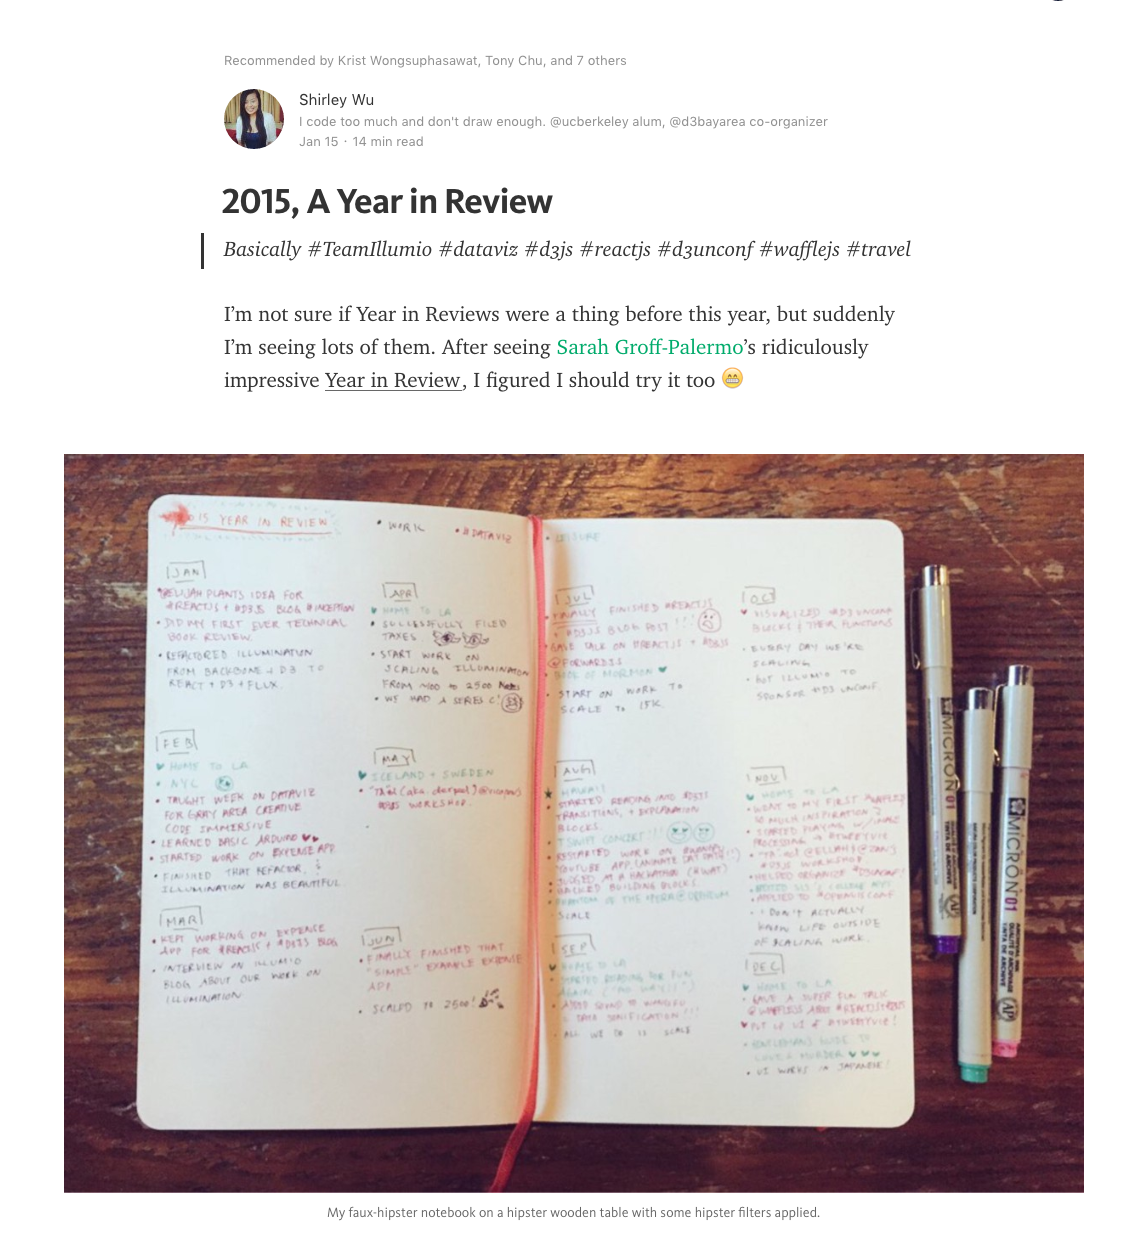 Recommended by Krist Wongsuphasawat, Tony Chu, and 7 others
Shirley Wu
I code too much and don't draw enough. @ucberkeley alum, @d3bayarea co-organizer
Jan 15 · 14 min read
2015, A Year in Review
Basically #TeamIllumio #dataviz #d3js #reactjs #d3unconf #wafflejs #travel
I'm not sure if Year in Reviews were a thing before this year, but suddenly
I'm seeing lots of them. After seeing Sarah Groff-Palermo's ridiculously
impressive Year in Review, I figured I should try it too 😁
15 YEAR IN REVIEW
• WORK
• #DATAVIZ
JAN
ELIJAH PLANTS IDEA FOR
#REACTJS + #D3JS BLOG #INCEPTION
• DID MY FIRST EVER TECHNICAL
BOOK REVIEW.
• REFACTORED ILLUMINATION
FROM BACKBONE + D3 TO
REACT + D3 + FLUX.
FEB
♥ HOME TO LA
• NYC
• TAUGHT WEEK ON DATAVIZ
FOR GRAY AREA CREATIVE
CODE IMMERSIVE
• LEARNED BASIC ARDUINO ♥♥
• STARTED WORK ON EXPENSE APP
• FINISHED THAT REFACTOR.
ILLUMINATION WAS BEAUTIFUL
MAR
• KEPT WORKING ON EXPENSE
APP FOR #REACTJS + #D3JS BLOG
• INTERVIEW ON ILLUMIO
BLOG ABOUT OUR WORK ON
ILLUMINATION
APR
♥ HOME TO LA
• SUCCESSFULLY FILED
TAXES.
• START WORK ON
SCALING ILLUMINATION
FROM TO 2500
• WE HAD A SERIES C!
MAY
♥ ICELAND + SWEDEN
WORKSHOP.
JUN
• FINALLY FINISHED THAT
"SIMPLE" EXAMPLE EXPENSE
APP
• SCALED TO 2500!
• LEISURE
JUL
• FINALLY FINISHED #REACTJS
+ #D3JS BLOG POST!!!
GAVE TALK ON #REACTJS + #D3JS
@FORWARDJS
BOOK OF MORMON ♥
• START ON WORK TO
SCALE TO 15K
AUG
★ HAWAII
• STARTED READING INTO #D3JS
TRANSITIONS, + EXPLANATION
BLOCKS.
TSWIFT CONCERT!!!
RESTARTED WORK ON
JUDGED AT A HACKATHON
HACKED BUILDING BLOCKS
PHANTOM OF THE OPERA
• SCALE
SEP
♥ HOME TO LA
STARTED READING FOR FUN
AGAIN
• ADDED SOUND TO
DATA SONIFICATION!!!
• ALL WE DO IS SCALE
OCT
♥ VISUALIZED #D3UNCONF
BLOCKS + THEIR FUNCTIONS
• EVERY DAY WE'RE
SCALING
• GOT ILLUMIO TO
SPONSOR #D3 UNCONF.
NOV
♥ HOME TO LA
• WENT TO MY FIRST
SO MUCH INSPIRATION
• STARTED PLAYING W/
#D3JS WORKSHOP.
• HELPED ORGANIZE #D3UNCONF!
• I DON'T ACTUALLY
KNOW LIFE OUTSIDE
OF SCALING WORK.
DEC
♥ HOME TO LA
• GAVE A SUPER FUN TALK
@WAFFLEJS ABOUT
• GENTLEMAN'S GUIDE TO
LOVE + MURDER ♥♥♥
• UI WORKS IN JAPANESE!
MICRON 01
MICRON 01
My faux-hipster notebook on a hipster wooden table with some hipster filters applied.